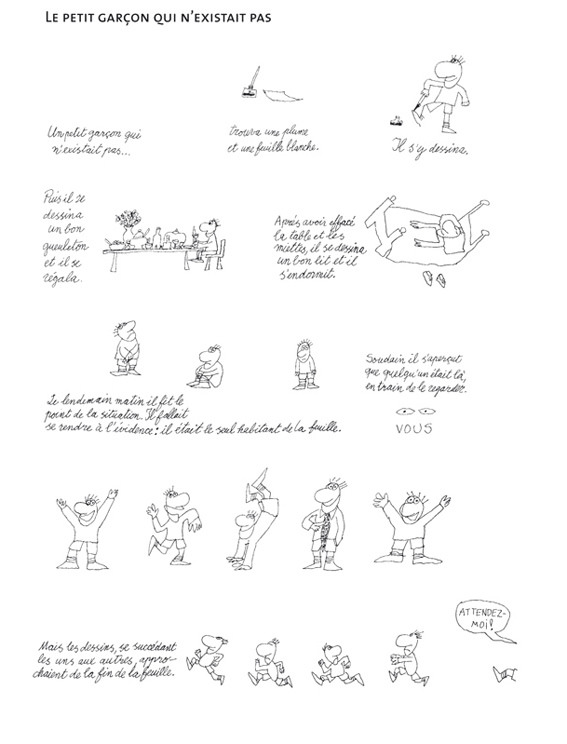 LE PETIT GARÇON QUI N'EXISTAIT PAS
Un petit garçon qui
n'existait pas...
trouva une plume
et une feuille blanche.
Il s'y dessina.
Puis il se
dessina
un bon
gueuleton
et il se
régala.
Après avoir effacé
la table et les
miettes, il se dessina
un bon lit et il
s'endormit.
Le lendemain matin il fit le
point de la situation. Il fallait
se rendre à l'évidence : il était le seul habitant de la feuille.
Soudain il s'aperçut
que quelqu'un était là,
en train de le regarder.
VOUS
Mais les dessins, se succédant
les uns aux autres, appro-
chaient de la fin de la feuille.
ATTENDEZ-
MOI!